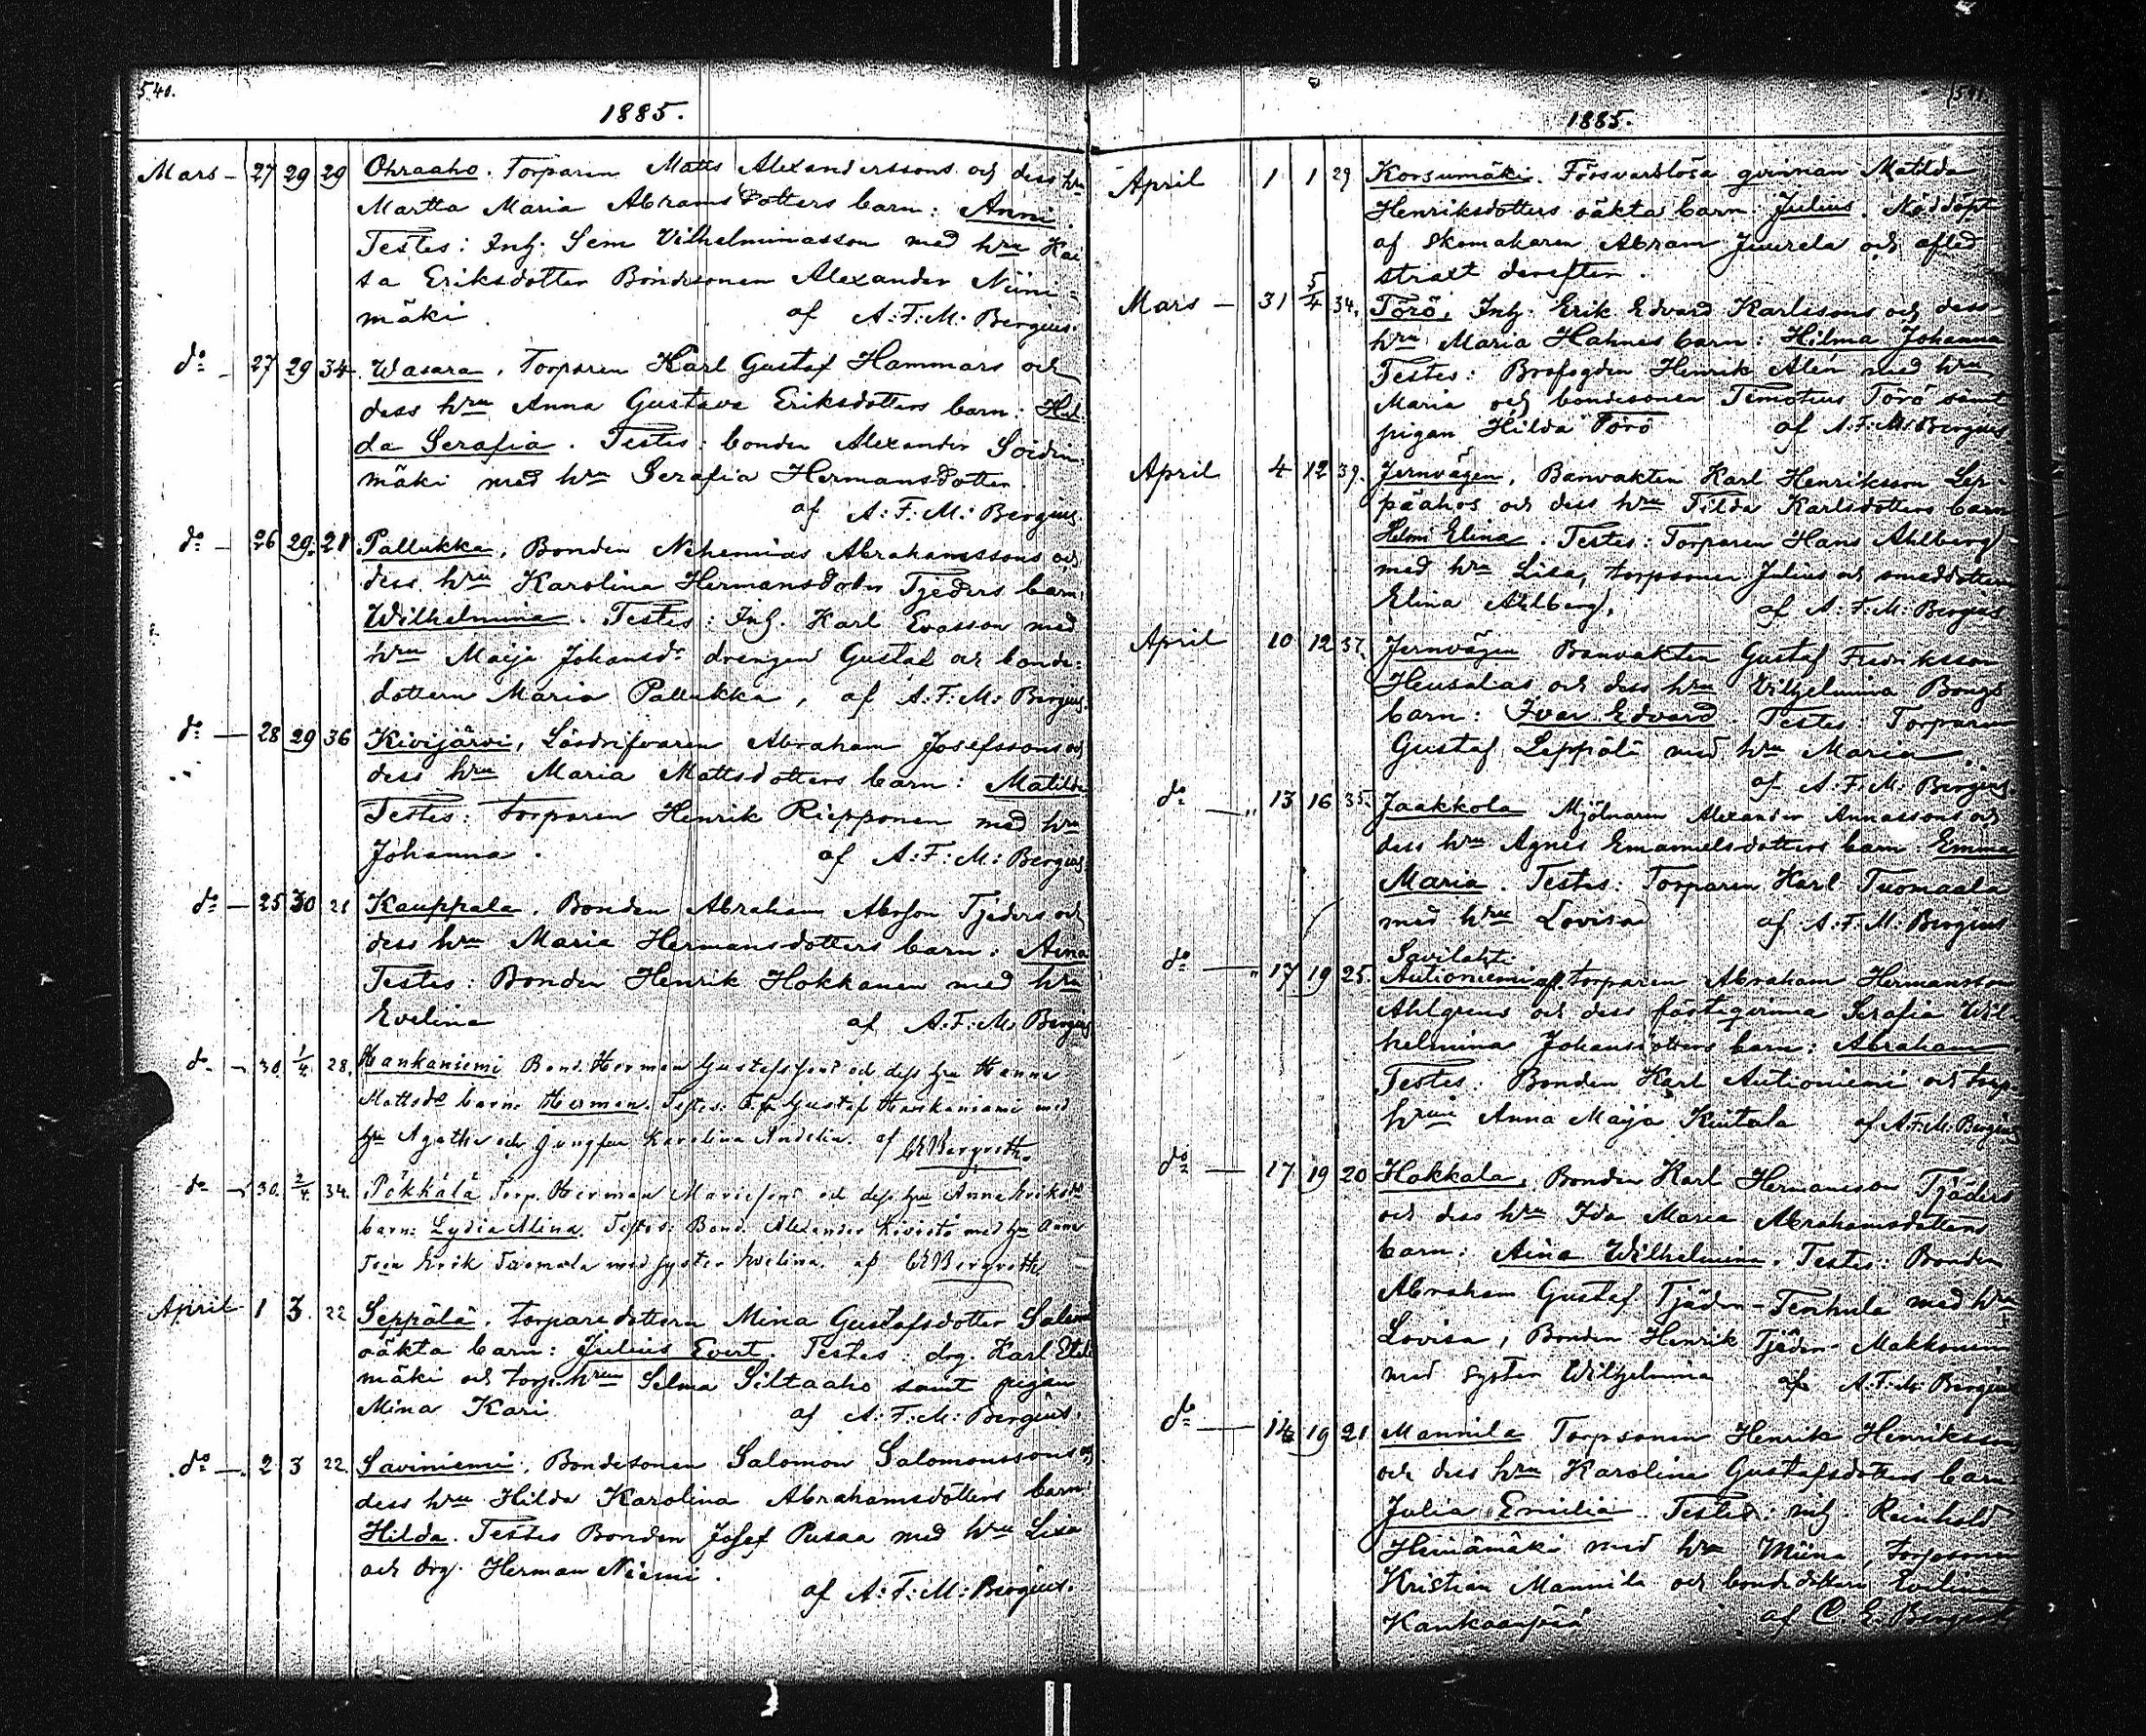 540.
1885.
Mars - 27 29 29 Ohraaho. Torparen Matts Alexanderssons och dess hru
Martta Maria Abramsdotters barn: Anni.
Testes: Inh. Sem Vilhelminasson med hru Kai
sa Eriksdotter Bondesonen Alexander Niini=
mäki. af A: F: M: Bergius.
do - 27 29 34. Wasara. Torparen Karl Gustaf Hammars och
dess hru Anna Gustava Eriksdotters barn: Hul
da Serafia. Testes: bonden Alexander Soidin
mäki med hru Serafia Hermansdotter.
af A: F: M: Bergius.
do - 26 29. 21 Pallukka, Bonden Nehemias Abrahamssons och
dess hru Karolina Hermansdotter Tjeders barn:
Wilhelmina. Testes: Inh. Karl Evasson med
hru Maija Johansdr drengen Gustaf och bonde-
dottern Maria Pallukka, af A: F: M: Bergius.
do - 28 29 36 Kivijärvi, Lösdrifvaren Abraham Josefssons och
dess hru Maria Mattsdotters barn: Matilda
Testes: torparen Henrik Riepponen med hru
Johanna. af A: F: M: Bergius
do - 25 30 21 Kauppala. Bonden Abraham Abrsson Tjeders och
dess hru Maria Hermansdotters barn: Aina
Testes: Bonden Henrik Hokkanen med hru
Evelina af A. F. M. Bergius
do - 30. 1/4 28. Hankaniemi Bond. Herman Gustafssons och dess hru Hanna
Mattsdr barn: Herman. Testes: Gustaf Hankaniemi med
hru Agatha och jungfru Karolina Andelin. af CEBergroth.
do - 30. 2/4. 34. Pökkälä Torp. Herman Mariessons och dess hru Anna Eriksdrs
barn: Lydia Alina. Testes: Bond. Alexander Kivistö med hru Anna
Erik Tuomala med syster Evelina. af CEBergroth
April 1 3. 22 Seppälä, torparedottern Mina Gustafsdotter
oäkta barn: Julius Evert. Testes: drg. Karl Etelä
mäki och torp. hrun Selma Siltaaho samt pigan
Mina Kari af A: F: M: Bergius.
do - 2 3 22. Saviniemi, Bondesonen Salomon Salomonssons och
dess hru Hilda Karolina Abrahamsdotters barn
Hilda. Testes Bonden Josef Pusaa med hru Lisa
och drg. Herman Niemi.
af A: F: M: Bergius.
1885.
April 1 1 29 Korsumäki. Försvarslösa qvinnan Matilda
Henriksdotters oäkta barn: Julius. Nöddöpt
af skomakaren Abram Juurela och afled
straxt derefter.
Mars - 31 5/4 34. Törö, Inh. Erik Edvard Karlssons och dess
hru Maria Hahnes barn: Hilma Johanna
Testes: Brofogden Henrik Alén med hru
Maria och bondesonen Timoteus Törö samt
pigan Hilda Törö af A. F. M. Bergius
April 4 12 39. Jernvägen, Banvakten Karl Henriksson Lep-
päahos och dess hru Tilda Karlsdotters barn
Helmi Elina. Testes: Torparen Hans Ahlberg
med hru Lisa, torpsonen Julius och smeddottern
Elina Ahlberg. af A: F. M: Bergius
April 10 12 37. Jernvägen Banvakten Gustaf Fredriksson
och dess hru Vilhelmina Bongs
barn: Ivar Edvard. Testes: Torparen
Gustaf Leppälä med hru Maria.
af A: F. M: Bergius
do - 13 16 35. Jaakkola Mjölnaren Alexander Annassons och
dess hru Agnes Emanuelsdotters barn: Emma
Maria. Testes: Torparen Karl Tuomaala
med hru Lovisa af A: F: M: Bergius
Savilahti
do - 17 19 25. Autioniemi af torparen Abraham Hermansson
Ahlgrens och dess fästeqvinna Serafia Wil-
helmina Johansdotters barn: Abraham
Testes: Bonden Karl Autioniemi och torp-
hrun Anna Maija Kiitula af A. F. M. Bergius
do - 17 19 20 Hakkala, Bonden Karl Hermansson Tjäders
och dess hru Ida Maria Abrahamsdotters
barn: Aina Wilhelmina. Testes: Bonden
Abraham Gustaf Tjäder-Tenhula med hru
Lovisa, Bonden Henrik Tjäder-Makkonen
med syster Wilhelmina af A. F. M. Bergius
do - 14 19 21 Mannila Torpsonen Henrik Henriksson
och dess hru Karolina Gustafsdotters barn
Julia Emilia. Testes: inh. Reinhold
Heinämäki med hru Miina, torpsonen
Kristian Mannila och bondedottern Evelina
Kankaanpää af C. E. Bergroth